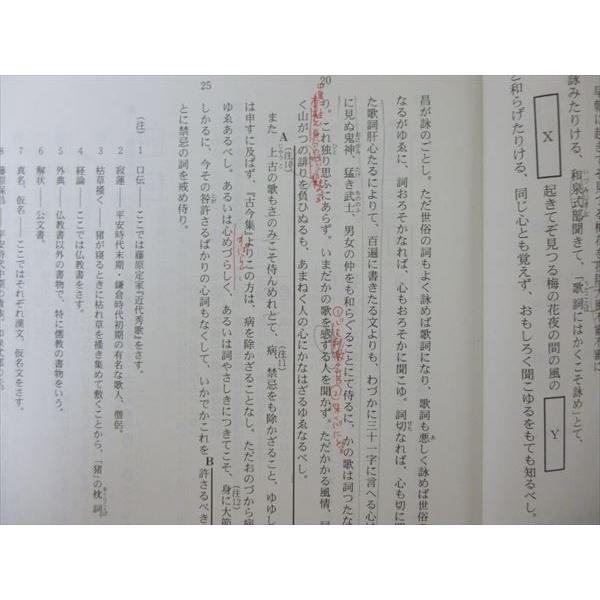 早朝に起きてぞ見つる梅
詠みたりける、和泉式部聞きて、「歌詞にはかくこそ詠め」とて、
X 起きてぞ見つる梅の花夜の間の風の Y
と和らげたりける、同じ心とも覚えず、おもしろく聞こゆるをもても知るべし。
昌が詠のごとし。ただ世俗の詞もよく詠めば歌詞になり、歌詞も悪しく詠めば世俗
なるがゆゑに、詞おろそかなれば、心もおろそかに聞こゆ。詞切なれば、心も切に聞
た歌詞肝心たるによりて、百遍に書きたる文よりも、わづかに三十一字に言へる心は
に見ぬ鬼神、猛き武士、男女の仲をも和らぐることにて侍るに、かの歌は詞つたな
20
り。これ独り思ふにあらず。いまだかの歌を感ずる人を聞かず。ただかかる風情、詞
く山がつの誹りを負ひぬるも、あまねく人の心にかなはざるゆゑなるべし。
A (注10) (注11)
また、上古の歌もさのみこそ侍んめれとて、病、禁忌をも除かざること、ゆゆし
は申すに及ばず、『古今集』よりこの方は、病を除かざることなし。ただおのづから病
ゆゑあるべし。あるいは心めづらしく、あるいは詞やさしきにつきてこそ、身に大節
(注12)
25
しかるに、今その咎許さるばかりの心詞もなくして、いかでかこれを許さるべき
B
とに禁忌の詞を戒め侍り。
(注) 1 口伝――ここでは藤原定家『近代秀歌』をさす。
2 寂蓮――平安時代末期・鎌倉時代初期の有名な歌人、僧侶。
3 枯草掻く――猪が寝るときに枯れ草を掻き集めて敷くことから、「猪」の枕詞
4 経論――ここでは仏教書をさす。
5 外典――仏教書以外の書物で、特に儒教の書物をいう。
6 解状――公文書。
7 真名、仮名――ここではそれぞれ漢文、仮名文をさす。
8 藤原保昌